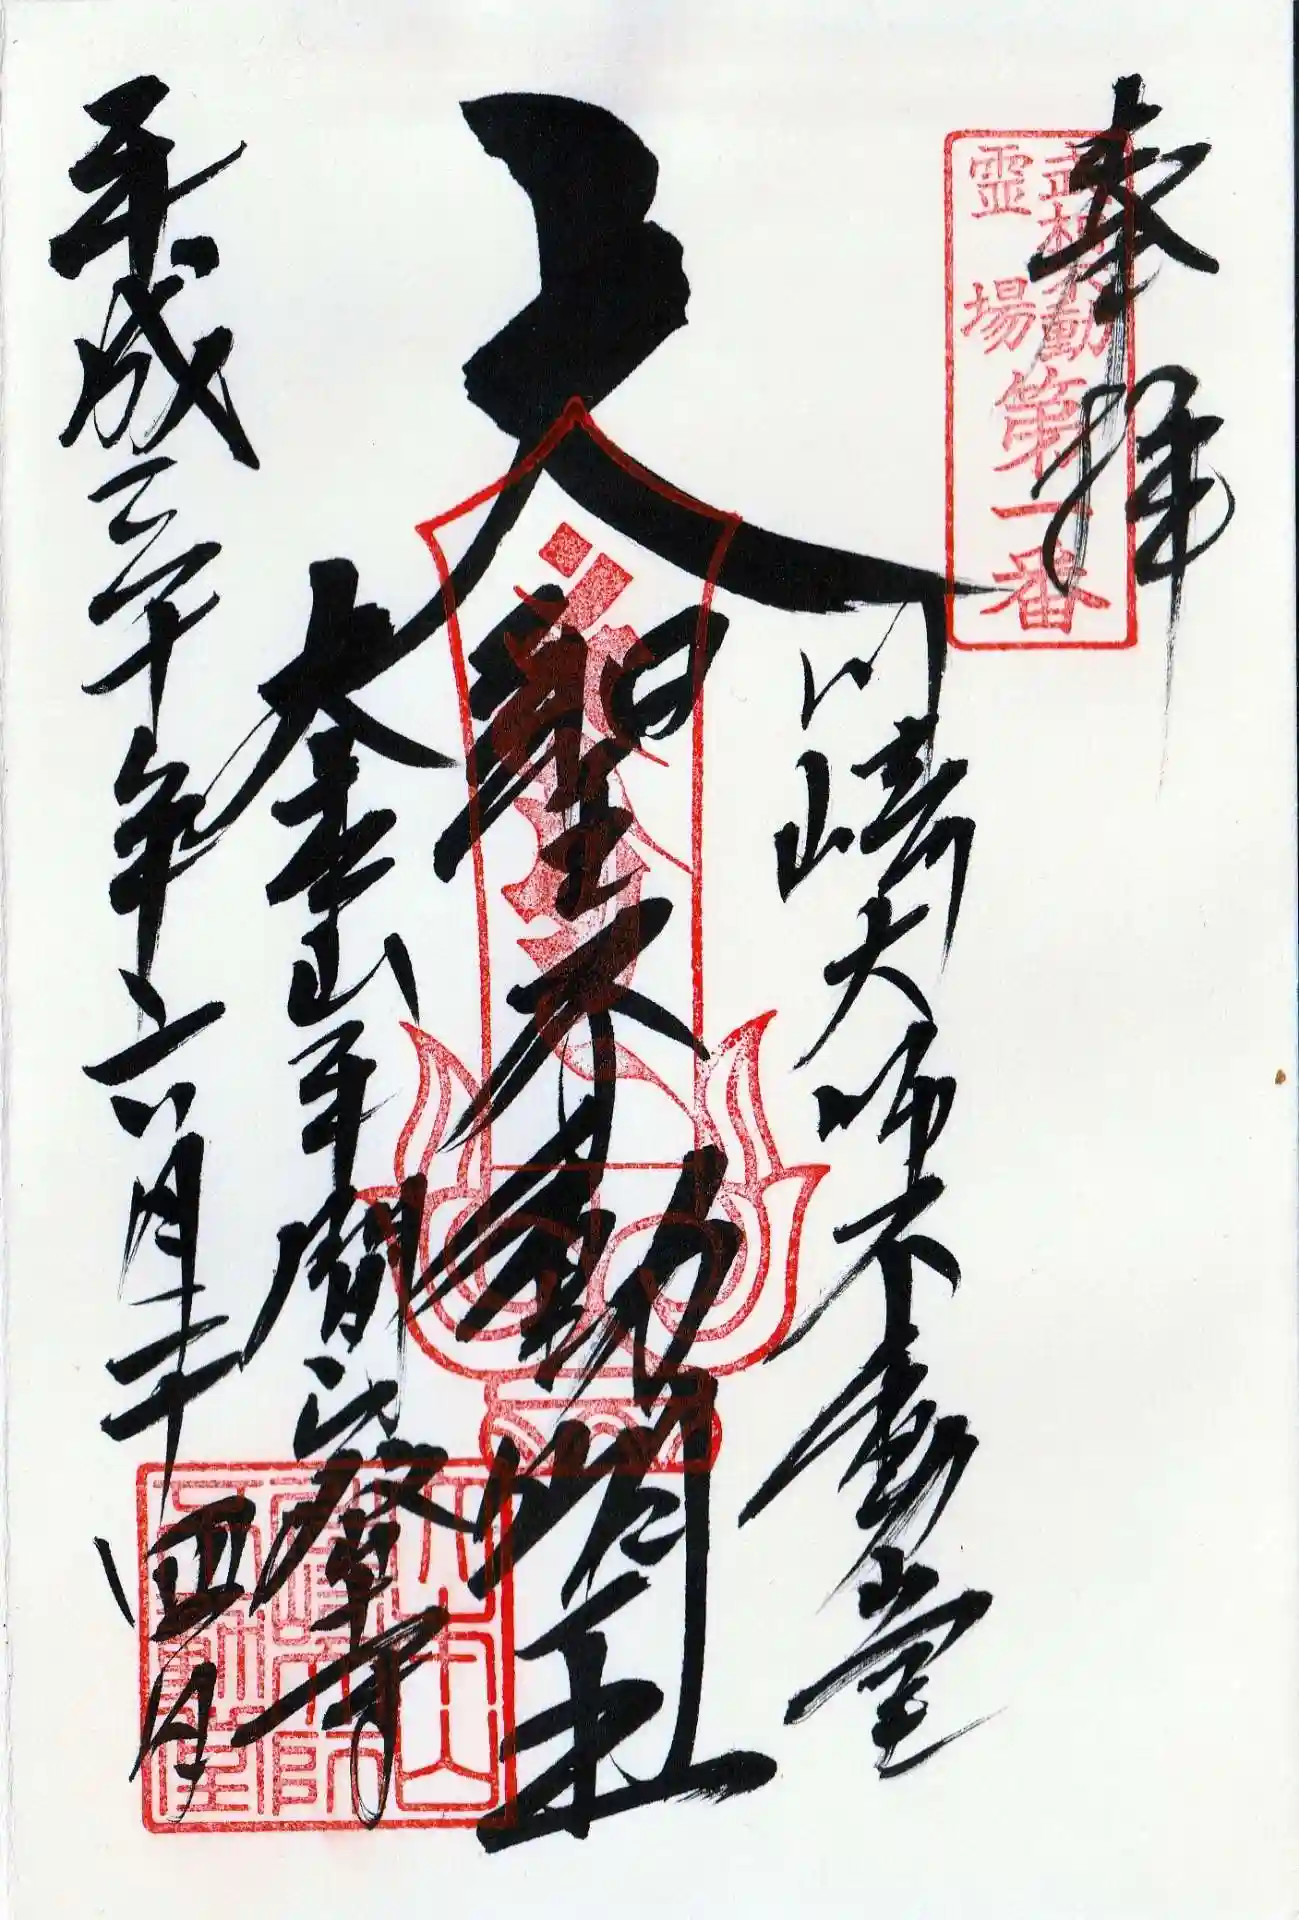 奉拝
武相不動
霊場
第一番
川崎大師不動堂
大聖不動明王
大本山平間
寺
平成三十年六月二十四日
大本山
不動堂